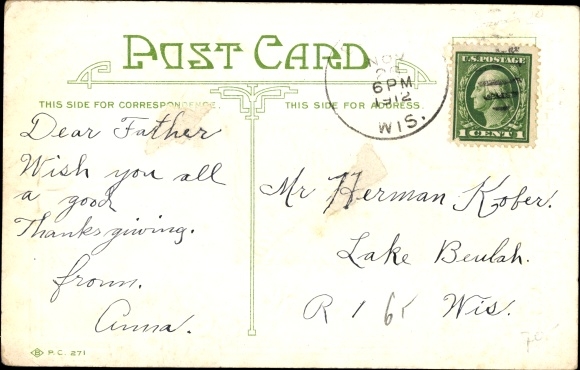 POST CARD
THIS SIDE FOR CORRESPONDENCE.
THIS SIDE FOR ADDRESS.
NOV
6 PM
1912
WIS.
U.S. POSTAGE
1 CENT 1
Dear Father
Wish you all
a good
Thanksgiving.
from.
Anna.
Mr Herman Kober.
Lake Beulah.
R 1 65 Wis.
P.C. 271